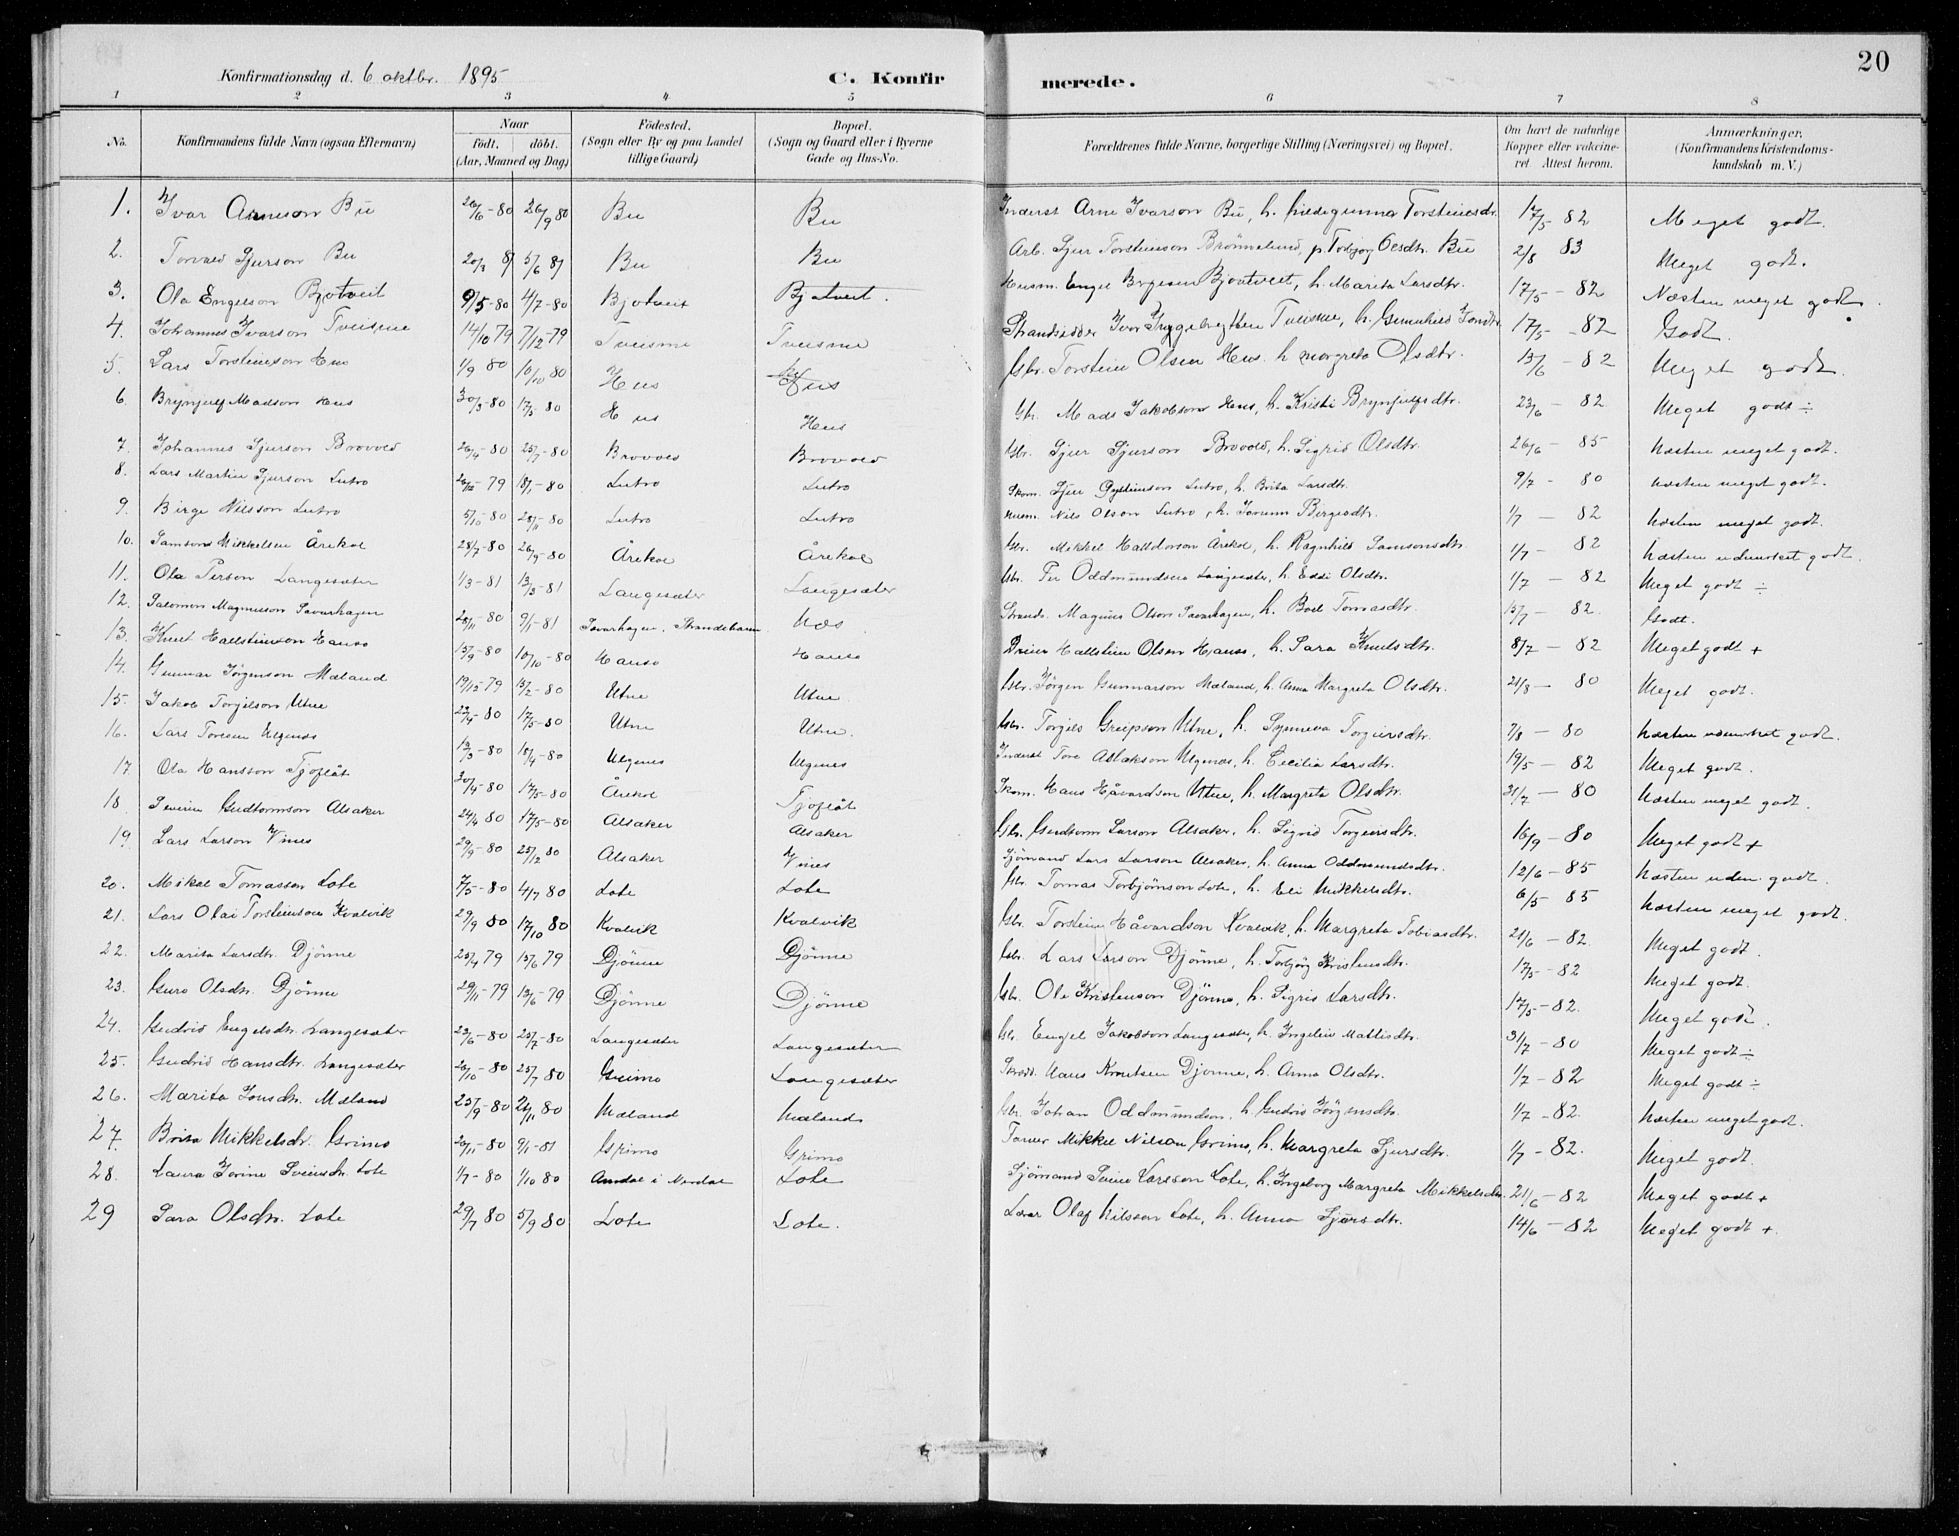 20
Konfirmationsdag d. 6 oktbr. 1895
C. Konfirmerede.
1 2 3 4 5 6 7 8
No. Konfirmandens fulde Navn (ogsaa Efternavn) Naar födt. döbt. (Aar, Maaned og Dag) Födested. (Sogn eller By og paa Landet tillige Gaard) Bopæl. (Sogn og Gaard eller i Byerne Gade og Hus-No. Forældrenes fulde Navne, borgerlige Stilling (Næringsvei) og Bopæl. Om havt de naturlige Kopper eller vakcineret. Attest herom. Anmærkninger. (Konfirmandens Kristendomskundskab m. V.)
1. Ivar Arneson Bu 26/6-80 26/9 80 Bu Bu Inderst Arne Ivarson Bu, h. Torsteinsdr. 17/5 82 Meget godt.
2. Torvald Sjurson Bu 20/3 81 5/6 81 Bu Bu Arb. Sjur Torsteinson Brönnelund, p. Torbjor Olsdtr. Bu 2/8 83 Meget godt.
3. Ola Engelson Bjotveit 9/5-80 4/7-80 Bjotveit Bjotveit. Husm. Engel Bjotveit, h. Marita Larsdtr. 17/5-82 Næsten meget godt.
4. Johannes Ivarson Tveisme 14/10 79 7/12-79 Tveisme Tveisme Strandsidder Ivar Tveisme, h. Gunnhild 17/5-82 Godt.
5. Lars Torsteinson Hus 1/9 80 10/10 80 Hus Hus Gbr. Torstein Olsen Hus. h. Margreta Olsdtr. 13/6-82 Meget godt.
6. Brynjulf Madson Hus 30/3-80 17/5 80 Hus Hus Gbr. Mads Jakobson Hus, h. Kristi Brynjulfsdtr. 23/6-82 Meget godt ÷
7. Johannes Sjurson Brovold 26/4-80 25/7-80 Brovold Brovold Gbr. Sjur Sjurson Brovold, h. Sigrid Olsdtr. 26/6-85 Næsten meget godt.
8. Lars Martin Sjurson Lutro 26/12-79 18/1-80 Lutro Lutro Skom. Sjur Lutro, h. Brita Larsdtr. 9/7-80 Næsten meget godt.
9. Birge Nilsson Lutro 5/10-80 28/11-80 Lutro Lutro Husm. Nils Olson Lutro, h. Jorunn Bergesdtr. 1/7-82 Næsten meget godt.
10. Samson Mikkelsen Årekol 28/7-80 26/9-80 Årekol Årekol Gbr. Mikkel Halldorson Årekol, h. Ragnhild Samsonsdtr. 1/7-82 Næsten udmerket godt.
11. Ola Person Langesæter 1/3-81 13/3-81 Langesæter Langesæter Gbr. Per Oddmundsen Langesæter, h. Eldi Olsdtr. 1/7-82 Meget godt ÷
12. Salomon Magnusson Savarhagen 28/11-80 9/1-81 Savarhagen, Strandebarm Næs Strands. Magnus Olson Savarhagen, h. Boel Tomasdtr. 13/7-82. Godt.
13. Knut Hallsteinson Hauso 13/9-80 10/10-80 Hauso Hauso Dreier Hallstein Olsen Hauso, h. Sara Knutsdtr. 8/7-82 Meget godt +
14. Gunnar Jörgenson Mæland 19/12-79 15/2-80 Utne Utne Gbr. Jörgen Gunnarson Mæland, h. Anna Margreta Olsdtr. 21/8-80 Meget godt.
15. Jakob Torgilson Utne 23/4-80 17/5-80 Utne Utne. Gbr. Torgils Greipson Utne, h. Synneva Torgeirsdtr. 7/8-80 Næsten udmerket godt.
16. Lars Toreson Ulgenes 13/3-80 18/4-80 Ulgenes Ulgenes Inderst Tore Aslakson Ulgenes, h. Cecilia Larsdtr. 19/5-82 Meget godt.
17 Ola Hansson Tjoflåt 30/4-80 17/5-80 Årekol Tjoflåt Skom. Hans Håvardson Utne, h. Margreta Olsdtr. 31/7-80 Næsten meget godt.
18. Severin Gudtormson Alsaker 24/4 80 17/5-80 Alsaker Alsaker Gbr. Gudtorm Larson Alsaker, h. Sigrid Torgeirsdtr. 16/9-80 Meget godt +
19. Lars Larson Vines 29/9-80 25/12 80 Alsaker Vines Sjömand Lars Larson Alsaker, h. Anna Oddmundsdtr. 12/6-85 Næsten udm. godt.
20. Mikal Tomasson Lote 7/5-80 4/7 80 Lote Lote Gbr. Tomas Torbjörnson Lote, h. Eli Mikkelsdtr. 6/5-85 Næsten meget godt.
21. Lars Olai Torsteinson Kvalvik 29/9 80 17/10 80 Kvalvik Kvalvik Gbr. Torstein Håvardson Kvalvik, h. Margreta Tobiasdtr. 21/6-82. Meget godt.
22. Marita Larsdtr. Djönne 25/4 79 15/6 79 Djönne Djönne Gbr. Lars Larson Djönne, h. Torbjörg Kristensdtr. 17/5-82 Meget godt.
23. Guro Olsdtr. Djönne 29/11-79 13/6-79 Djönne Djönne Gbr. Ole Kristenson Djönne, h. Sigrid Larsdtr. 17/5-82. Meget godt.
24. Gudrid Engelsdtr. Langesæter 23/6-80 25/7-80 Langesæter Langesæter Gbr. Engel Jakobson Langesæter, h. Ingeleiv Mattisdtr. 31/7-80 Meget godt ÷
25. Gudrid Hansdtr. Langesæter 26/10-80 25/7 80 Grimo Langesæter Skræd. Hans Knutsen Djønne, h. Anna Olsdtr. 1/7-82 Meget godt ÷
26. Marita Jonsdtr. Mæland 25/9-80 21/11 80 Mæland Mæland Gbr. Johan Oddmundson, h. Gudrid Jörgensdtr. 1/7-82. Næsten meget godt.
27. Brita Mikkelsdtr. Grimo 20/11-80 9/1-81 Grimo Grimo Mikkel Nilsen Grimo, h. Margreta Sjursdtr. 1/7-82. Meget godt.
28. Laura Jorine Sveinsdtr. Lote 1/7-80 1/10 80 Amdal i Nordal Lote Sjömand Svein Larsson Lote, h. Ingeborg Margreta Mikkelsdtr. 21/6-82 Meget godt +
29 Sara Olsdtr. Lote 29/7 80 5/9 80 Lote Lote. Olaf Nilsson Lote, h. Anna Sjursdtr. 14/6-82 Meget godt +